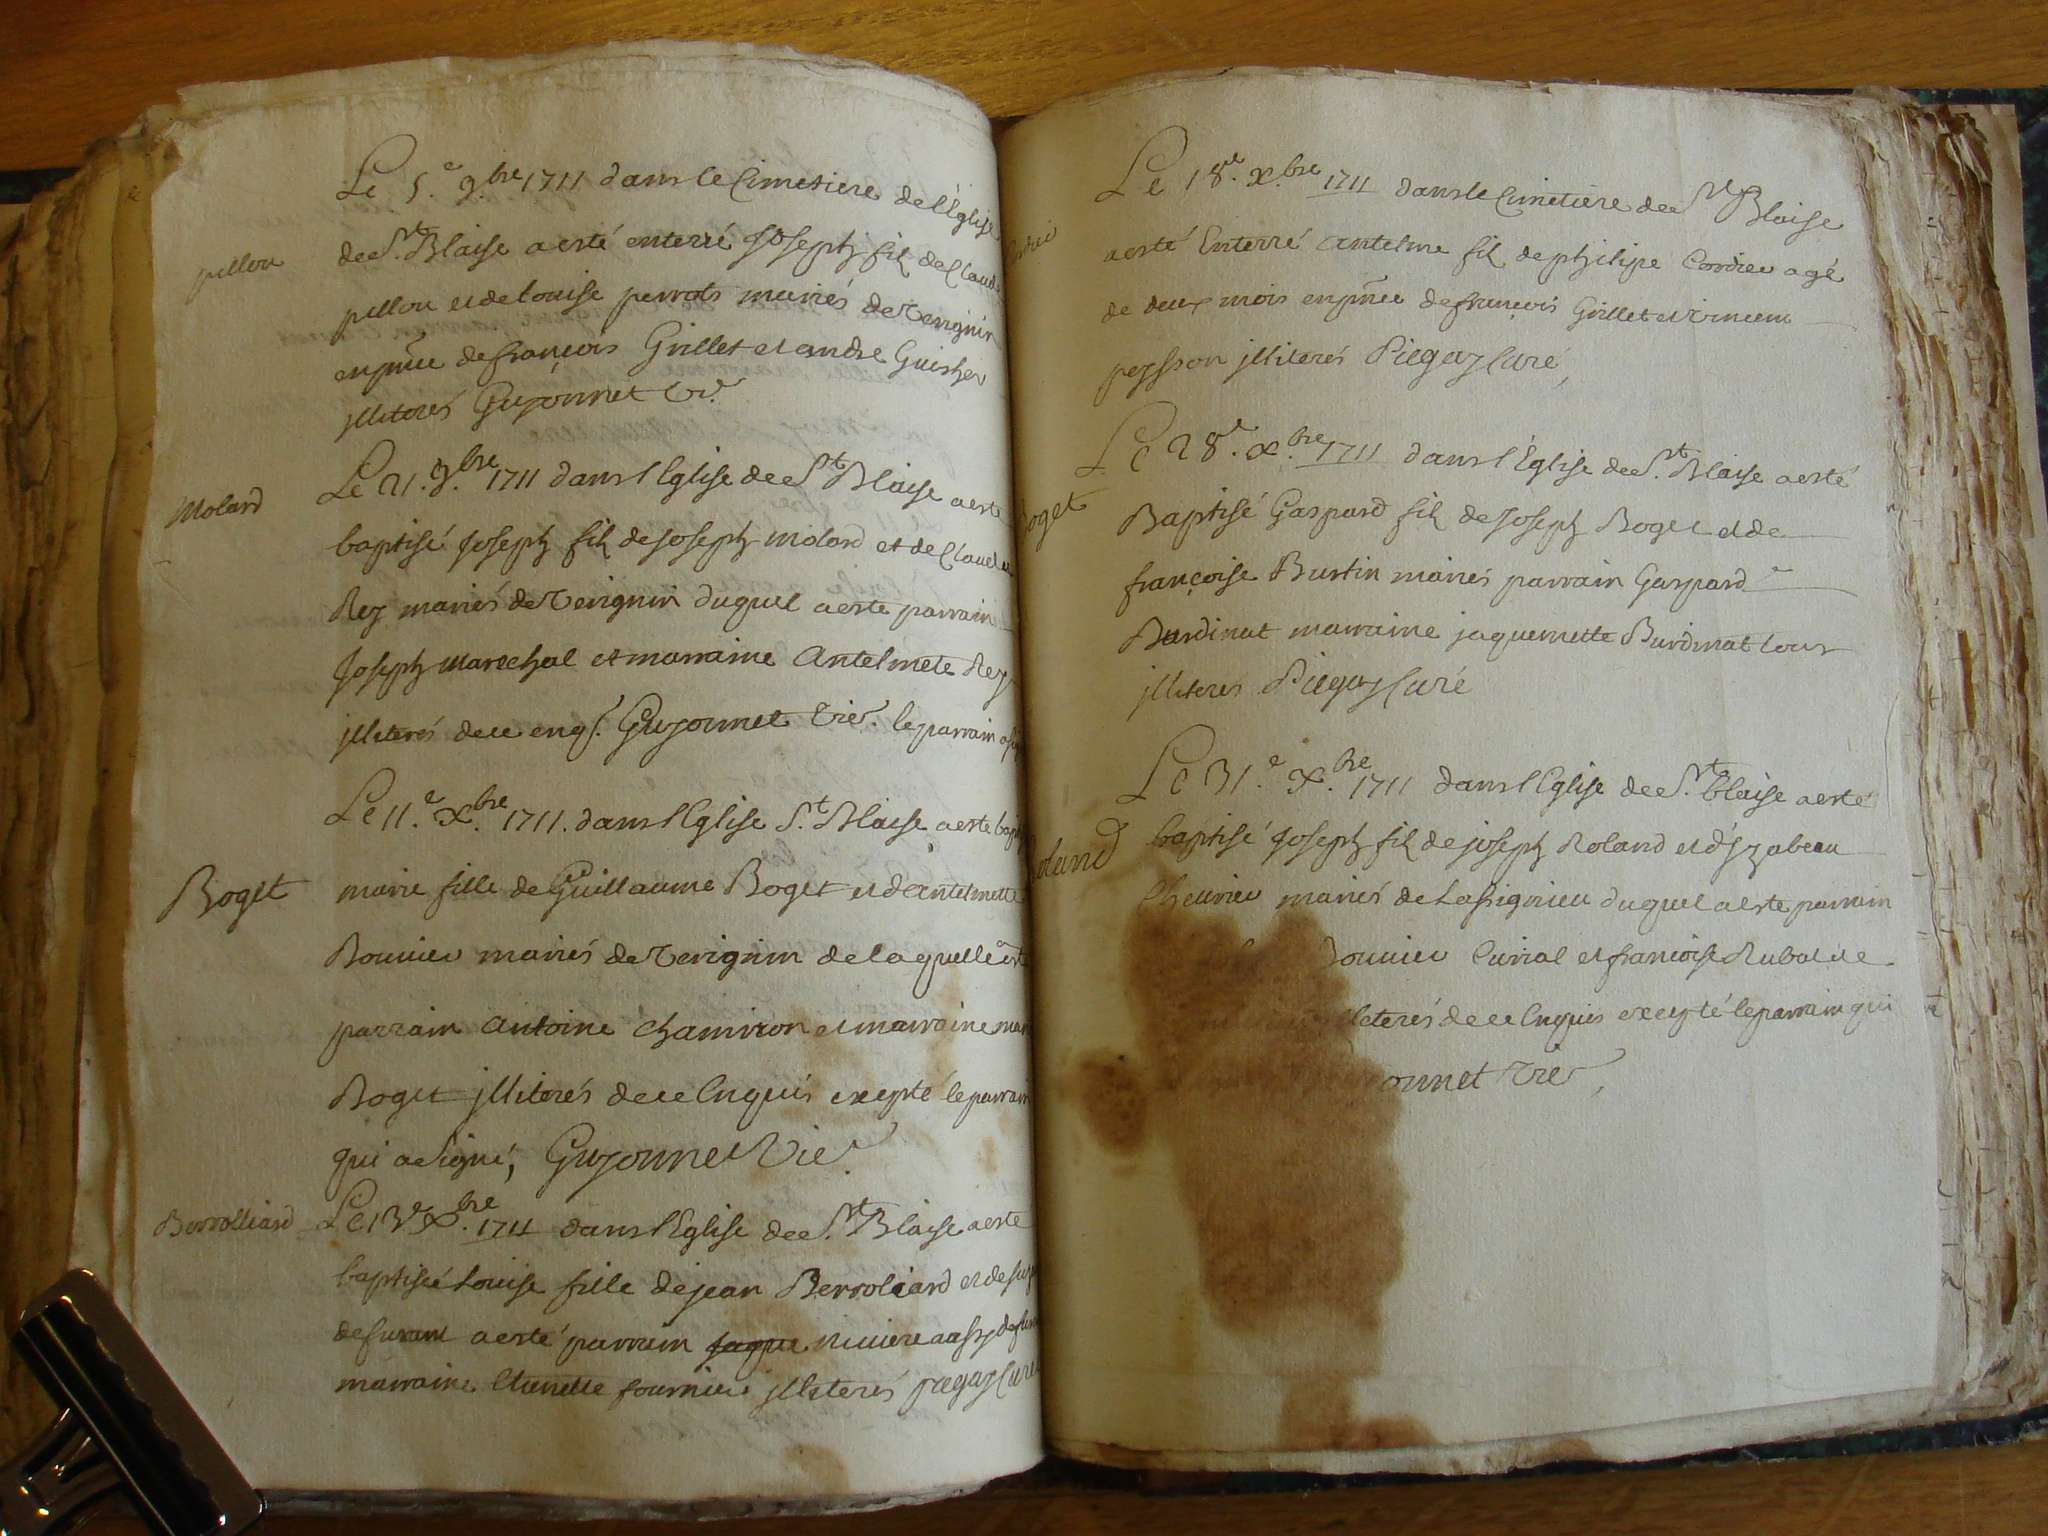 Le 5.e 9.bre 1711 dans le Cimetiere de l'Eglise
pillou
de St. Blaise a esté enterré Joseph fils de Claude
pillou et de Louise perrots mariés de Verignin
en pnce de françois Grillet et andre
jlliterés Guyonnet Vi.e
Molard
Le 21. 9.bre 1711 dans l'Eglise de St Blaise a este
baptisé Joseph fils de Joseph Molard et de Claudine
Rey mariés de Verignin duquel a este parrain
Joseph Marechal et marraine Antelmete Rey
jlliterés de ce enq.s Guyonnet Vie. le parrain
Le 11.e X.bre 1711. dans l'Eglise S.t Blaise a este
Boget
marie fille de Guillaume Boget et d'Antelmette
Bouvier mariés de Verignin de laquelle a esté
parrain Antoine Chamiron et marraine
Boget jlliterés de ce Enquis excepté le parrain
qui a signé, Guyonnet Vie.
Berrolliard
Le 13e X.bre 1711 dans l'Eglise de St. Blaise a este
baptisée Louise fille de jean Berroliard et de
a esté parrain Jaque riviere
marraine fournier jlliterés piegay Curé
Le 18.e X.bre 1711 dans le Cimetiere de St Blaise
a esté Enterré Antelme fils de philipe Cordier agé
de deux mois en pnce de françois Grillet et Vincent
peysson jlliterés Piegay Curé,
Le 28.e X.bre 1711 dans l'Eglise de St. Blaise a esté
oget
Baptisé Gaspard fils de Joseph Boget et de
françoise Burtin mariés parrain Gaspard
Burdinat marraine jaquemette Burdinat tous
jlliteres Piegay Curé
Le 31.e X.bre 1711 dans l'Eglise de St. blaise a esté
oland
baptisé Joseph fils de joseph Roland et d'Jzabeau
mariés de Lassignieu duquel a este parrain
ouvier Curial et francoise
leterés de ce Enquis excepté le parrain qui
onnet Vie,